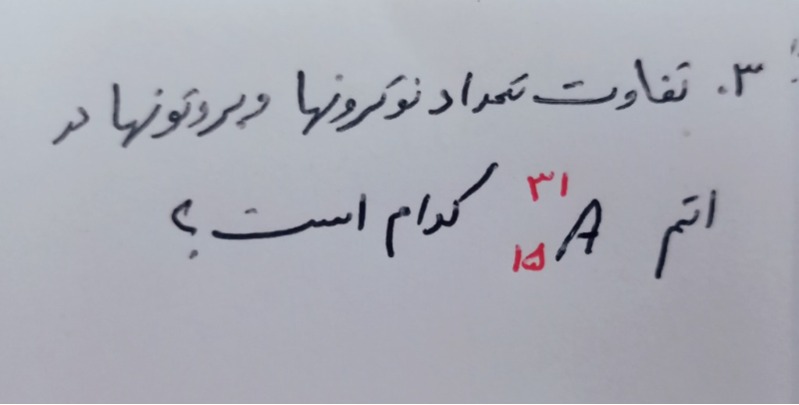 ۳. تفاوت تعداد نوترونها و پروتونها در
اتم ³¹₁₅A کدام است؟